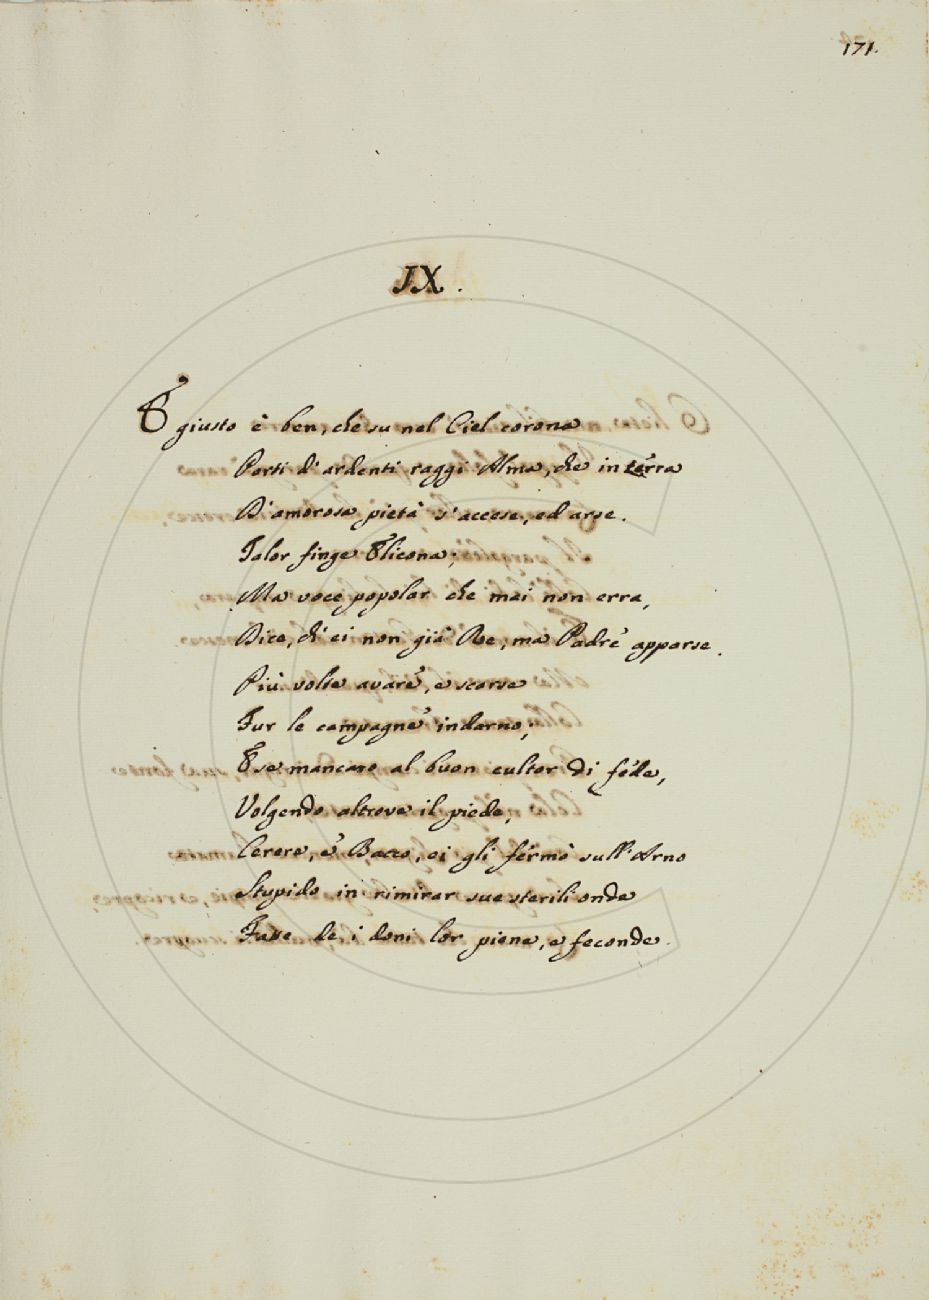 171.
IX.
E giusto è ben, che su nel Ciel corona
Porti d'ardenti raggi Alma, che in terra
D'amorosa pietà s'accese, ed arse.
Talor finge Elicona;
Ma voce popolar che mai non erra,
Dice, ch'ei non già Re, ma Padre apparse.
Più volte avare, e scarse
Fur le campagne indarno;
E se mancaro al buon cultor di fede,
Volgendo altrove il piede,
Cerere, e Bacco, ei gli fermò sull'Arno
Stupido in rimirar sue sterili onde
Farse de i doni lor piene, e feconde.